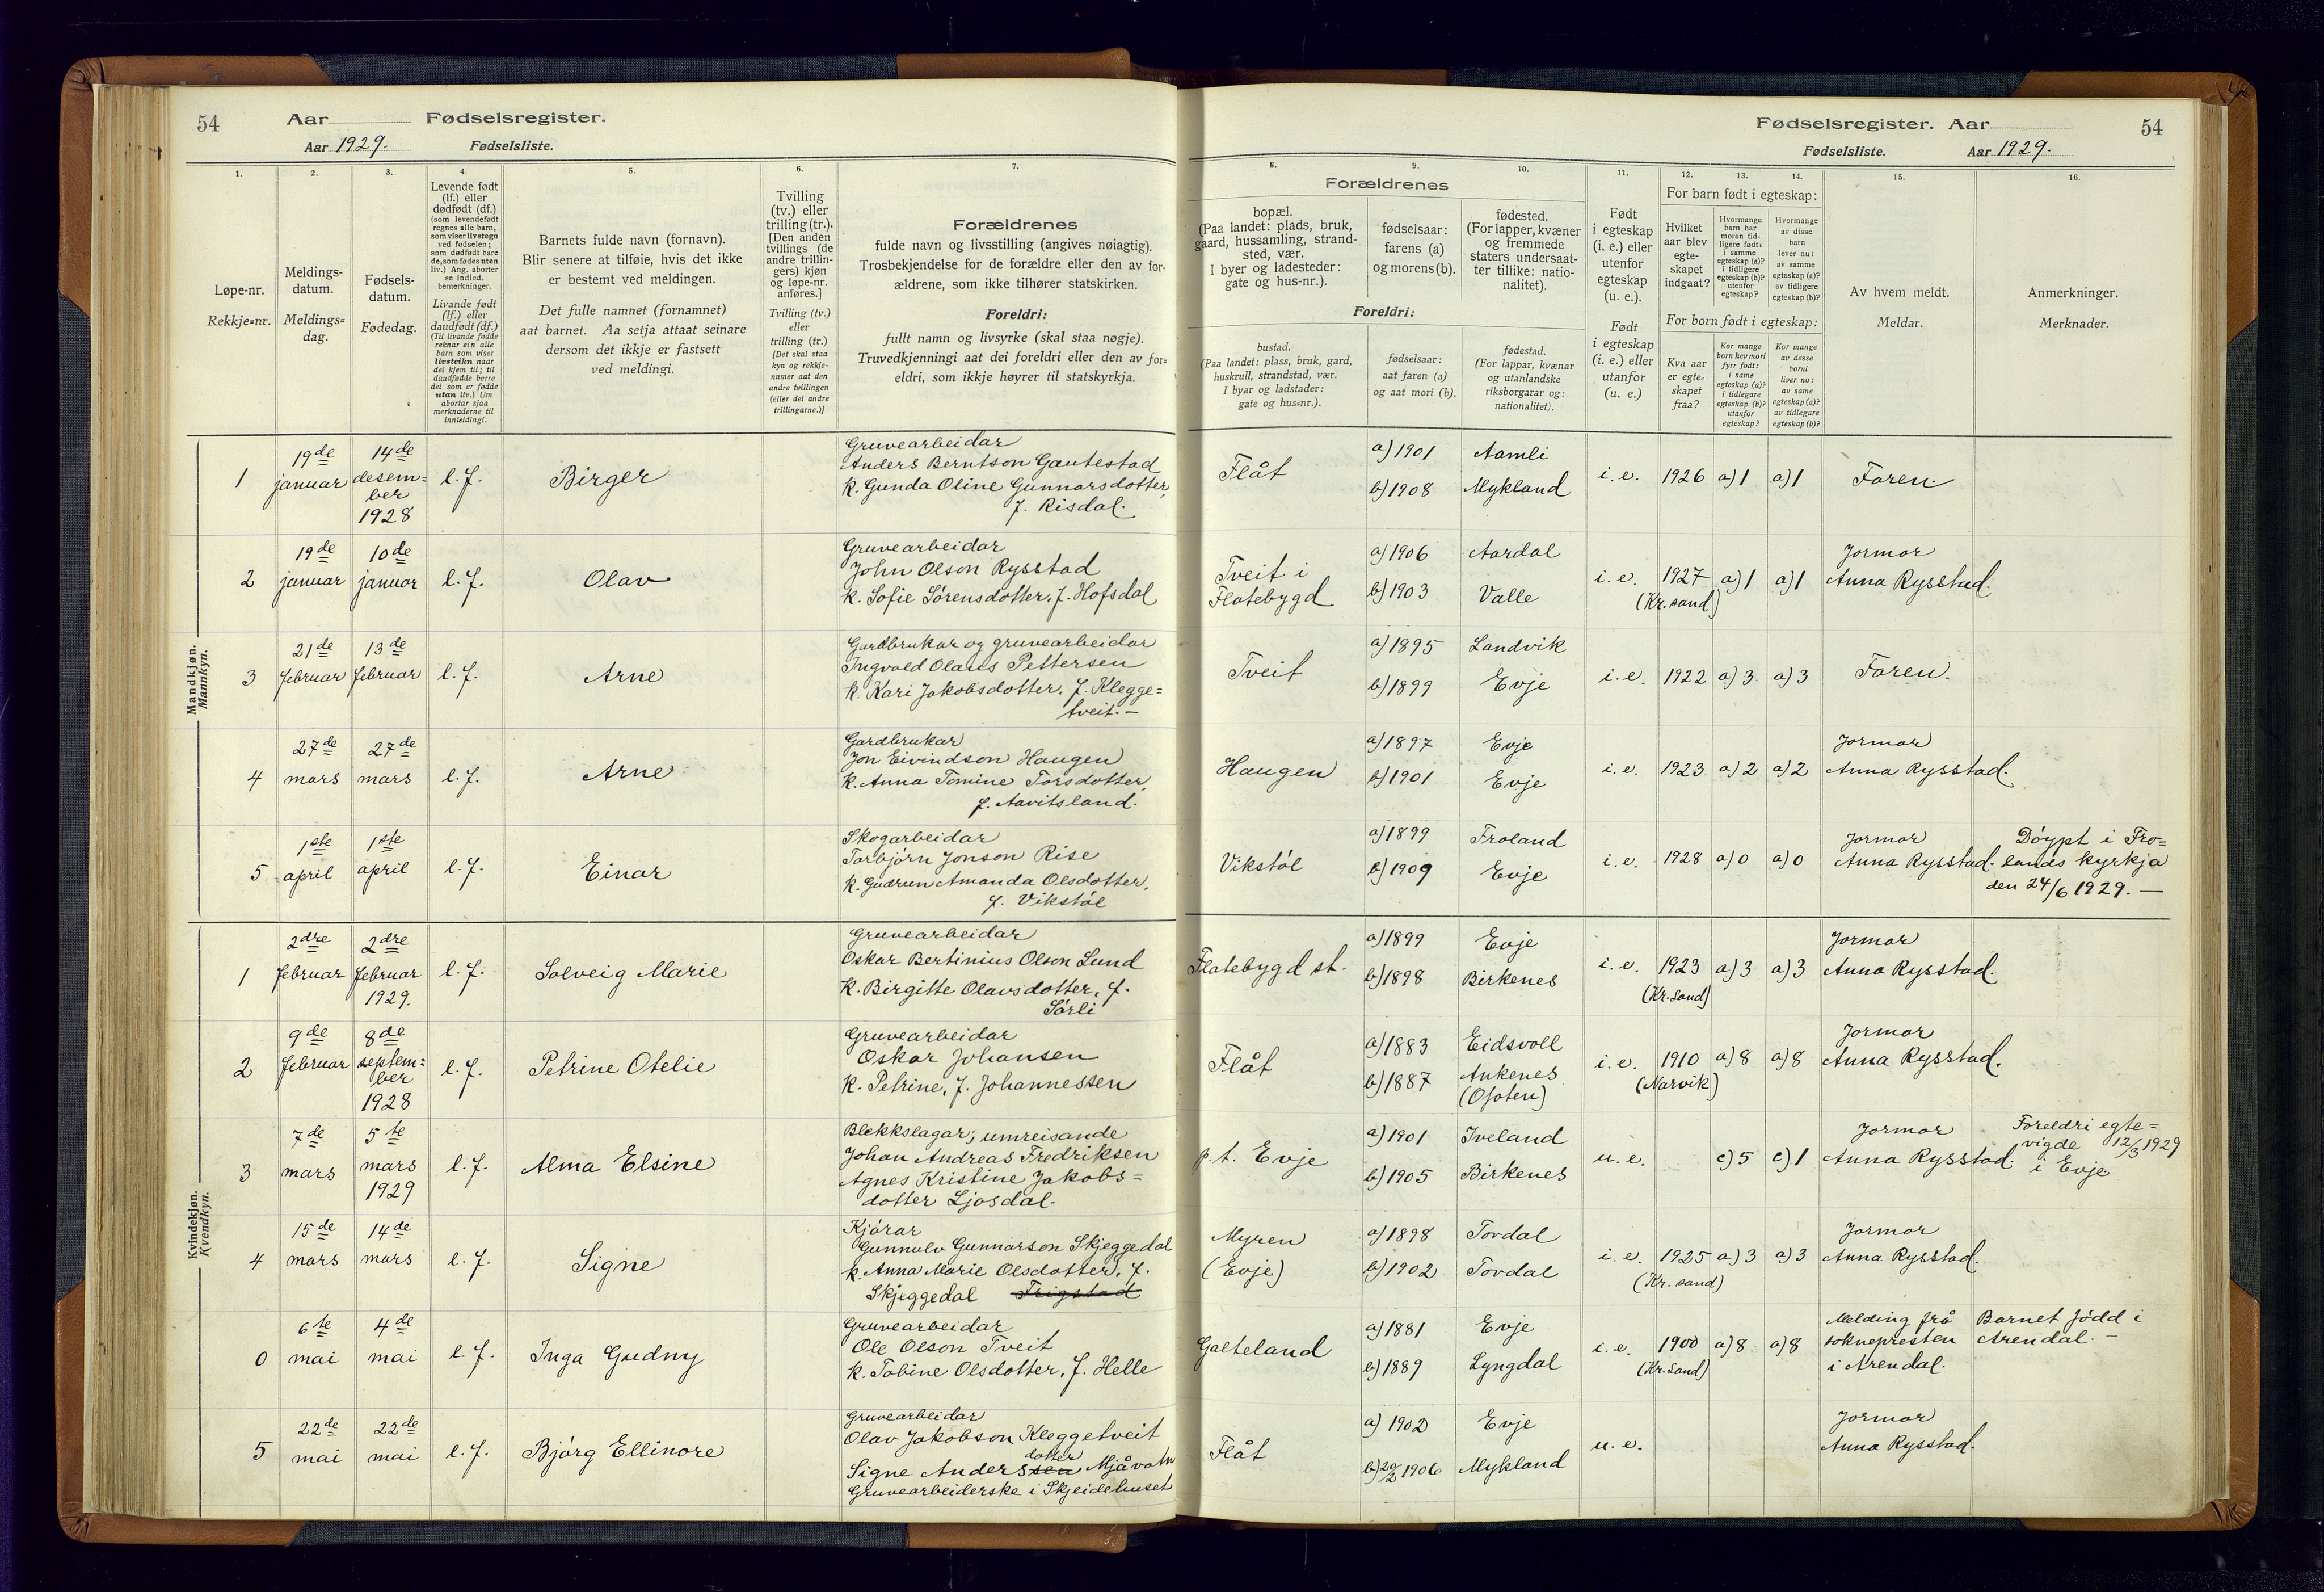 54 Aar Fødselsregister.
Aar 1929. Fødselsliste.
Fødselsregister. Aar 54
Fødselsliste. Aar 1929.
1. 2. 3. 4. 5. 6. 7.
Løpe-nr.
Rekkje=nr.
Meldings-
datum.
Meldings=
dag.
Fødsels-
datum.
Fødedag.
Levende født
(lf.) eller
dødfødt (df.)
(som levendefødt
regnes alle barn,
som viser livstegn
ved fødselen;
som dødfødt bare
de, som fødes uten
liv.) Ang. aborter
se indled.
bemerkninger.
Livande født
(lf.) eller
daudfødt (df.)
(Til livande fødde
reknar ein alle
barn som viser
livsteikn naar
dei kjem til; til
daudfødde berre
dei som er fødde
utan liv.) Um
abortar sjaa
merknaderne til
innleidingi.
Barnets fulde navn (fornavn).
Blir senere at tilføie, hvis det ikke
er bestemt ved meldingen.
Det fulle namnet (fornamnet)
aat barnet. Aa setja attaat seinare
dersom det ikkje er fastsett
ved meldingi.
Tvilling
(tv.) eller
trilling (tr.).
[Den anden
tvillings (de
andre trillin-
gers) kjøn
og løpe-nr.
anføres.]
Tvilling (tv.)
eller
trilling (tr.)
[Det skal staa
kyn og rekkje-
numer aat den
andre tvillingen
(eller dei andre
trillingarne.)]
Forældrenes
fulde navn og livsstilling (angives nøiagtig).
Trosbekjendelse for de forældre eller den av for-
ældrene, som ikke tilhører statskirken.
Foreldri:
fullt namn og livsyrke (skal staa nøgje).
Truvedkjenningi aat dei foreldri eller den av for=
eldri, som ikkje høyrer til statskyrkja.
8. 9. 10. 11. 12. 13. 14. 15. 16.
Forældrenes
bopæl.
(Paa landet: plads, bruk,
gaard, hussamling, strand-
sted, vær.
I byer og ladesteder:
gate og hus-nr.).
fødselsaar:
farens (a)
og morens (b).
fødested.
(For lapper, kvæner
og fremmede
staters undersaat-
ter tillike: natio-
nalitet).
Foreldri:
bustad.
(Paa landet: plass, bruk, gard,
huskrull, strandstad, vær.
I byar og ladstader:
gate og hus=nr.).
fødselsaar:
aat faren (a)
og aat mori (b).
fødestad.
(For lappar, kvænar
og utanlandske
riksborgarar og:
nationalitet).
Født
i egteskap
(i. e.) eller
utenfor
egteskap
(u. e.).
Født
i egteskap
(i. e.) eller
utanfor
(u. e.)
For barn født i egteskap:
Hvilket
aar blev
egte-
skapet
indgaat?
Hvormange
barn har
moren tid-
ligere født:
i samme
egteskap (a)?
i tidligere
egteskap (b)?
utenfor
egteskap?
Hvormange
av disse
barn
lever nu:
av samme
egteskap (a)?
av tidligere
egteskap (b)?
For born født i egteskap:
Kva aar
er egte=
skapet
fraa?
Kor mange
born hev mori
fyrr født:
i same
egteskap (a)?
i tidlegare
egteskap (b)?
utanfor
egteskap?
Kor mange
av desse
borni
liver no:
av same
egteskap (a)?
av tidlegare
egteskap (b)?
Av hvem meldt.
Meldar.
Anmerkninger.
Merknader.
Mandkjøn.
Mannkyn.
1 19de januar 14de desem=
ber
1928 l. f. Birger
Gruvearbeidar
Anders Berntson Gautestad
k. Gunda Oline Gunnarsdotter,
f. Risdal.
Flåt a) 1901 Aamli
b) 1908 Mykland i. e. 1926 a) 1 a) 1 Faren.
2 19de januar 10de januar l. f. Olav
Gruvearbeidar
John Olson Rysstad
k. Sofie Sørensdotter, f. Hofsdal
Tveit i
Flatebygd a) 1906 Aardal
b) 1903 Valle i. e. 1927 (Kr.sand) a) 1 a) 1 Jormor
Anna Rysstad.
3 21de februar 13de februar l. f. Arne
Gardbrukar og gruvearbeidar
Ingvald Olaus Pettersen
k. Kari Jakobsdotter, f. Klegge=
tveit. —
Tveit a) 1895 Landvik
b) 1899 Evje i. e. 1922 a) 3 a) 3 Faren.
4 27de mars 27de mars l. f. Arne
Gardbrukar
Jon Eivindson Haugen
k. Anna Tomine Torsdotter,
f. Aavitsland.
Haugen a) 1897 Evje
b) 1901 Evje i. e. 1923 a) 2 a) 2 Jormor
Anna Rysstad.
5 1ste april 1ste april l. f. Einar
Skogarbeidar
Torbjörn Jonson Rise
k. Gudrun Amanda Olsdotter,
f. Vikstöl
Vikstöl a) 1899 Froland
b) 1909 Evje i. e. 1928 a) 0 a) 0 Jormor
Anna Rysstad.
Döypt i Fro=
lands kyrkja
den 24/6 1929. —
Kvindekjøn.
Kvendkyn.
1 2dre februar 2dre februar
1929. l. f. Solveig Marie
Gruvearbeidar
Oskar Bertinius Olson Lund
k. Birgitte Olavsdotter, f.
Sörli
Flatebygd st. a) 1899 Evje
b) 1898 Birkenes i. e. 1923 (Kr.sand) a) 3 a) 3 Jormor
Anna Rysstad.
2 9de februar 8de septem=
ber
1928 l. f. Petrine Otelie
Gruvearbeidar
Oskar Johansen
k. Petrine, f. Johannessen
Flåt a) 1883 Eidsvoll
b) 1887 Ankenes
(Ofoten) i. e. 1910 (Narvik) a) 8 a) 8 Jormor
Anna Rysstad.
3 7de mars 5te mars
1929 l. f. Alma Elsine
Blekkslagar; umreisande
Johan Andreas Fredriksen
Agnes Kristine Jakobs=
dotter Ljosdal.
p. t. Evje a) 1901 Iveland
b) 1905 Birkenes u. e. c) 5 c) 1 Jormor
Anna Rysstad.
Foreldri egte=
vigde 12/3 1929
i Evje
4 15de mars 14de mars l. f. Signe
Kjörar
Gunnulv Gunnarson Skjeggedal
k. Anna Marie Olsdotter, f.
Skjeggedal Frigstad
Myren
(Evje) a) 1898 Tovdal
b) 1902 Tovdal i. e. 1925 (Kr. sand) a) 3 a) 3 Jormor
Anna Rysstad.
0 6te mai 4de mai l. f. Inga Gudny
Gruvearbeidar
Ole Olson Tveit
k. Tobine Olsdotter, f. Helle
Galteland a) 1881 Evje
b) 1889 Lyngdal i. e. 1900 (Kr.sand) a) 8 a) 8 Melding frå
soknepresten
i Arendal.
Barnet född i
Arendal. —
5 22de mai 22de mai l. f. Björg Ellinore
Gruvearbeidar
Olav Jakobson Kleggetveit
dotter
Signe Anderssen Mjåvatn
Gruvearbeiderske i Skjeidehuset
Flåt a) 1902 Evje
b) 20/2 1906 Mykland u. e. Jormor
Anna Rysstad.